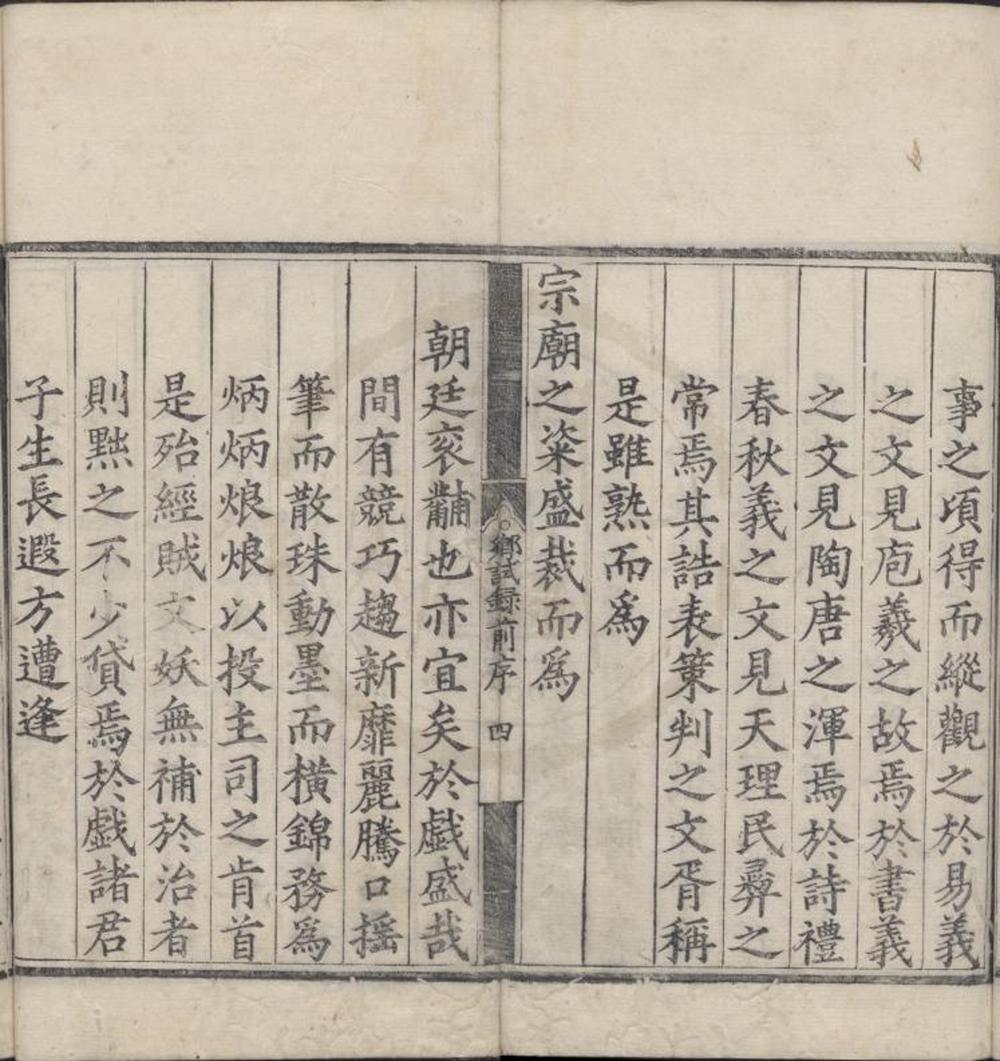 事之頃得而縱觀之於易義
之文見庖羲之故焉於書義
之文見陶唐之渾焉於詩禮
春秋義之文見天理民彛之
常焉其誥表策判之文胥稱
是雖熟而為
宗廟之粢盛裁而為
鄉試録前序 四
朝廷衮黼也亦宜矣於戲盛哉
間有競巧趨新靡麗騰口搖
筆而散珠動墨而橫錦務為
炳炳烺烺以投主司之肯首
是殆經賊文妖無補於治者
則黜之不少貸焉於戲諸君
子生長遐方遭逢